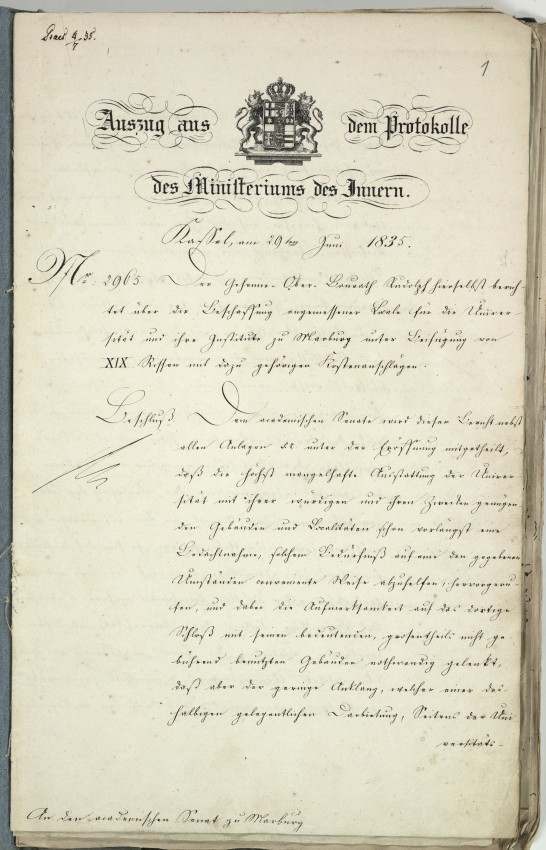 Praes 4/7 35.
1
Auszug aus dem Protokolle
des Ministeriums des Innern.
Kassel, am 29ten Juni 1835.
Nr. 2965. Der Geheime-Ober-Baurath Rudolph hierselbst berich-
tet über die Beschaffung angemessener Locale für die Univer-
sität und ihre Institute zu Marburg unter Beifügung von
XIX Rissen mit dazu gehörigen Kostenanschlägen.
Beschluß. Dem academischen Senate wird dieser Bericht nebst
allen Anlagen unter der Eröffnung mitgetheilt,
daß die höchst mangelhafte Ausstattung der Univer-
sität mit ihrer würdigen und ihren Zwecken genügen-
den Gebäuden und Localitäten schon vorlängst eine
Bedachtnahme, solchem Bedürfniß auf eine den gegebenen
Umständen conveniente Weise abzuhelfen, hervorgeru-
fen, und dabei die Aufmerksamkeit auf das dortige
Schloß mit seinen bedeutenden, großentheils nicht ge-
bührend benutzten Gebäuden nothwendig gelenkt,
daß aber der geringe Anklang, welcher einer des-
halbigen gelegentlichen Darbietung, Seitens der Uni
versitäts-
An den academischen Senat zu Marburg